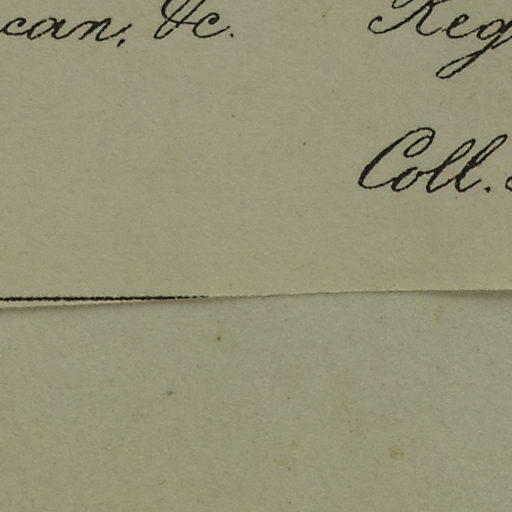 can, &c. Reg
Coll.